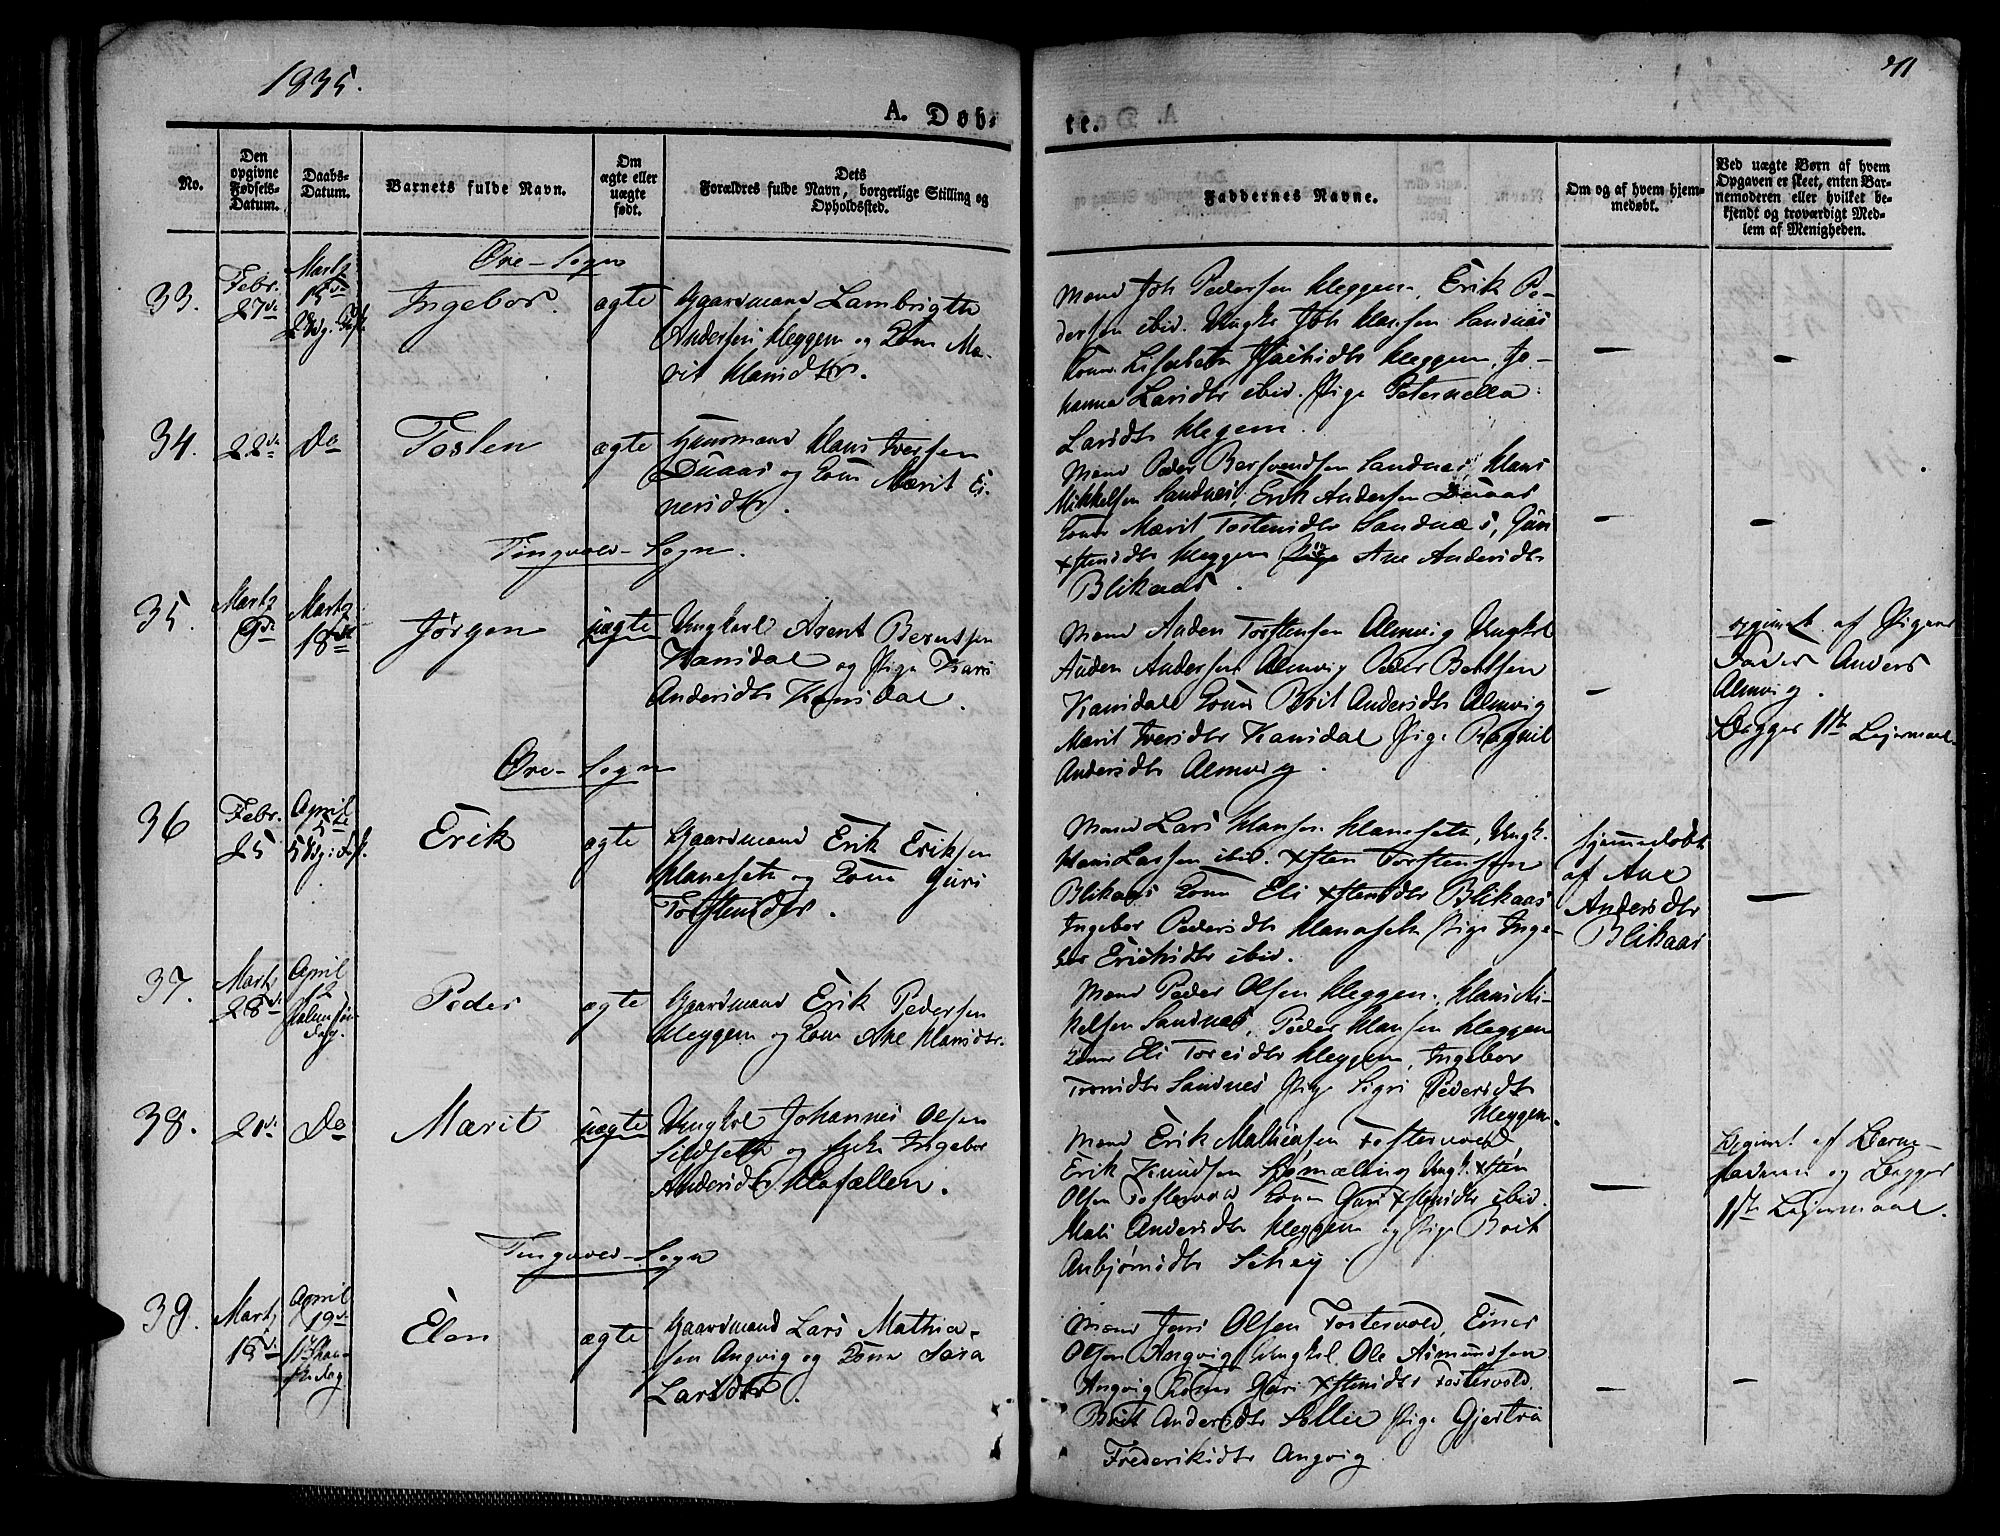 1835.
A. Døb-
te.
No.
Den
opgivne
Fødsels-
Datum.
Daabs-
Datum.
Barnets fulde Navn.
Om
ægte eller
uægte
født.
Dets
Forældres fulde Navn, borgerlige Stilling og
Opholdssted.
Faddernes Navne.
Om og af hvem hjem-
medøbt.
Ved uægte Børn af hvem
Opgaven er skeet, enten Bar-
nemoderen eller hvilket be-
kjendt og troværdigt Med-
lem af Menigheden.
Øre-Sogn
33.
Febr.
27de
Martz
15de
Ingebor.
ægte
Gaardmand Lambrigth
Andersen Kleggen og Kone Ma-
rit Klansdtr.
Mænd Joh Pedersen Kleggen, Erik Pe-
dersen ibid. Ungk. Joh Klansen Sandnæs
Kleggen, Jo-
hanna Larsdtr ibid. Pige Peternella
Larsdtr Kleggen.
—
—
34.
22de
Do
Tosten
ægte
Huusmand Klaus Iversen
Duaas og Kone Marit Ei-
nersdtr.
Mænd Peder Sandnæs, Klaus
Mikkelsen Sandnes, Erik Andersen Duaas
Koner Marit Tostensdtr Sandnæs, Guri
xstensdtr Kleggen Pige Ane Andersdtr
Blikaas.
—
—
Tingvold-Sogn.
35.
Martz
9de
Martz
18de
Jørgen
uægte
Ungkarl Arent Berntsen
Kansdal og Pige Kari
Andersdtr Kansdal.
Mænd Anden Torstensen Almvig Ungkrl
Anden Andersen Almvig Peder Bentsen
Kansdal Koner Brit Andersdtr Almvig
Marit Iversdtr Kansdal Pige Ragnil
Andersdtr Almvig.
—
opgivet af Pigens
Fader Anders
Almvig.
Begges 1ste Leiermaal.
Øre-Sogn
36
Febr.
25
April
5te
Erik
ægte
Gaardmand Erik Eriksen
Klanesetr og Kone Guri
Torstensdtr.
Mænd Lars Klansen Klanesetr, Ungk.
Hans Larsen ibid. xsten Torstensen
Blikaas Koner Eli xstensdtr Blikaas
Ingebor Pedersdtr Klanesetr Pige Inge-
bor Eriksdtr ibid.
hjemmedøbt
af Ane
Andersdtr
Blikaas
—
37.
Martz
28de
April
12
Palmesøn-
dag.
Peder
ægte
Gaardmand Erik Pedersen
Kleggen og Kone Ane Klansdtr.
Mænd Peder Olsen Kleggen, Klaus Mi-
kelsen Sandnes, Peder Klansen Kleggen
Koner Eli Toresdtr Kleggen, Ingebor
Torsdtr Sandnes Pige Sigri Pedersdtr
Kleggen.
38.
Do
Marit
uægte
Ungkrl Johannes Olsen
Sildsetr og Enke Ingebor
Andersdtr Klofallen.
Mænd Erik Mathiasen Fostervold
Erik Knudsen Ungk. xsten
Olsen Fostervold Kone Guri xstensdtr ibid.
Mali Andersdtr Kleggen og Pige Brit
Anbjørnsdtr
—
Opgivet af Barne-
faderen og Begges
1ste Leiermaal.
Tingvold-Sogn
39.
Martz
15de
April
19de
Elen
ægte
Gaardmand Lars Mathia-
sen Angvig og Kone Sara
Larsdtr.
Mænd Jens Olsen Fostervold, Einer
Olsen Angvig Ungkl. Ole Asmundsen
Angvig Koner Guri xstensdtr Fostervold
Brit Andersdtr Sollie Pige Gjertru
Frederiksdtr Angvig
—
—